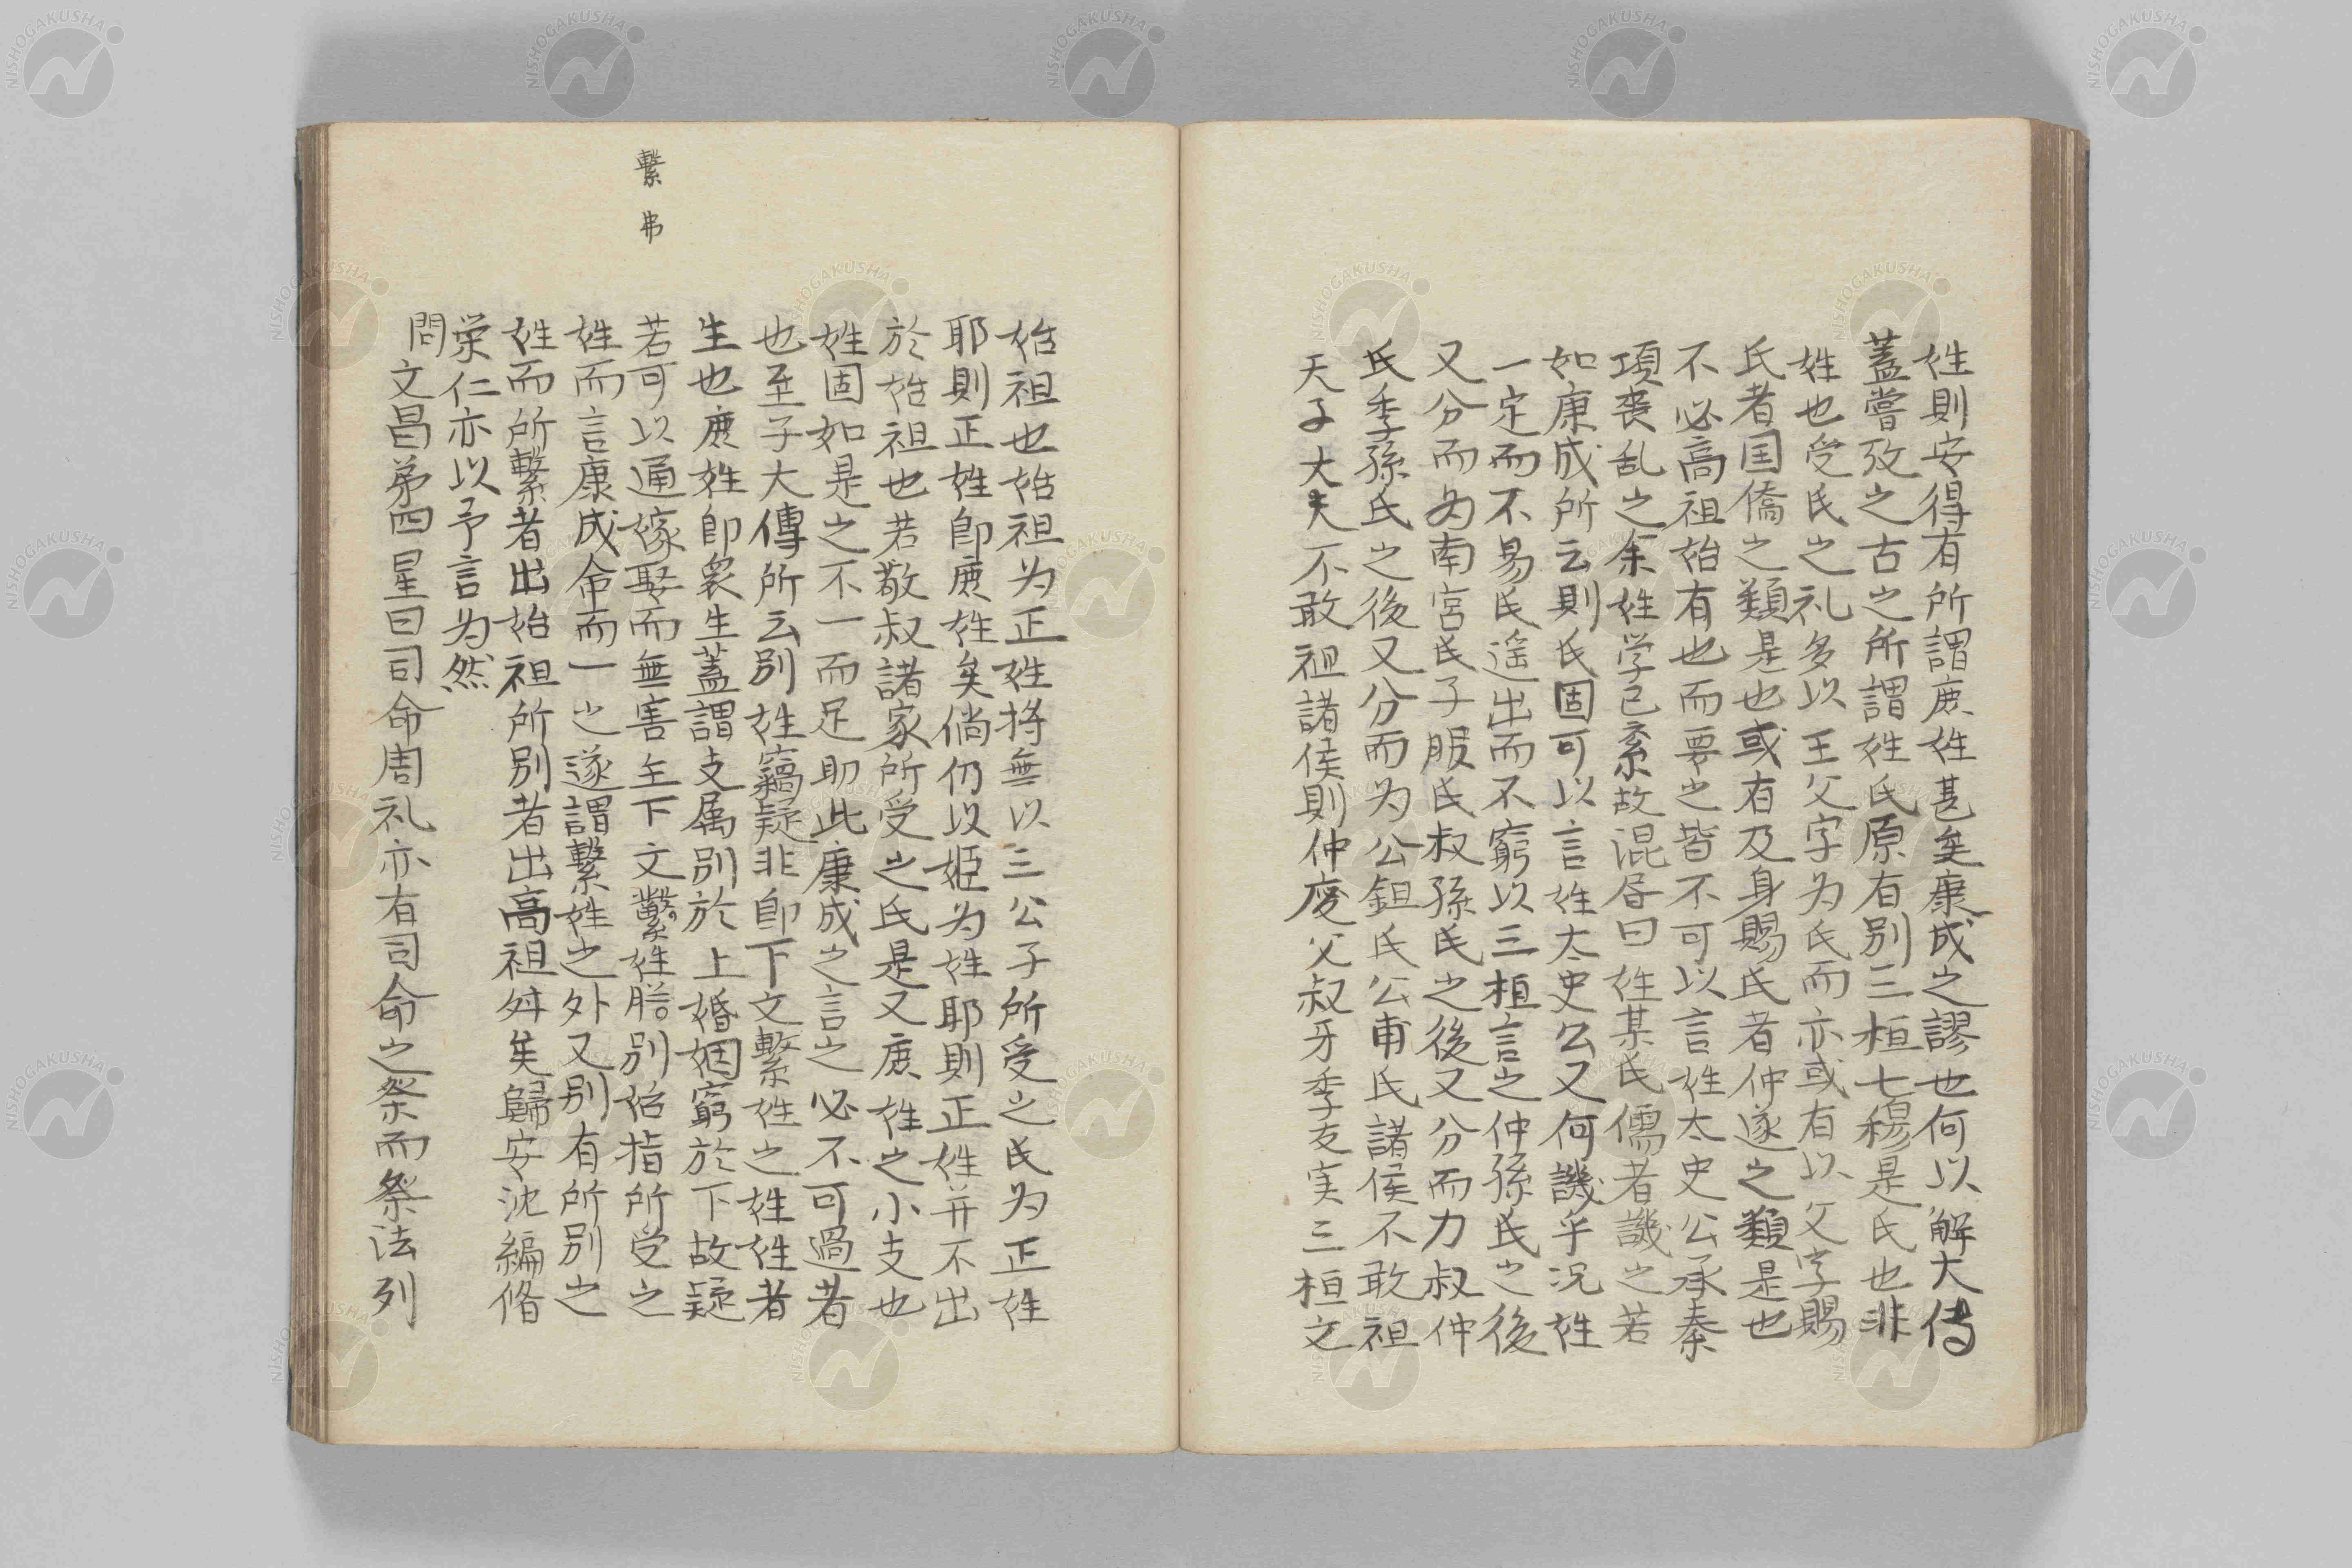 姓則安得有所謂庶姓甚矣康成之謬也何以解大傳
蓋嘗攷之古之所謂姓氏原有別三桓七穆是氏也非
姓也受氏之礼多以王父字为氏而亦或有以父字賜
氏者国僑之類是也或有及身賜氏者仲遂之類是也
不必高祖始有也而要之皆不可以言姓太史公承秦
項喪乱之余姓学已紊故混𠯑曰姓某氏儒者譏之若
如康成所云則氏固可以言姓太史公又何譏乎况姓
一定而不易氏遥出而不窮以三桓言之仲孫氏之後
又分而为南宮氏子服氏叔孫氏之後又分而力叔仲
氏季孫氏之後又分而为公鉏氏公甫氏諸侯不敢祖
天子大夫不敢祖諸侯則仲慶父叔牙季友実三桓之
始祖也始祖为正姓将無以三公子所受之氏为正姓
耶則正姓即庶姓矣倘仍以姫为姓耶則正姓并不出
於始祖也若敬叔諸家所受之氏是又庶姓之小支也
姓固如是之不一而足耶此康成之言之必不可過者
也至子大傳所云別姓竊疑非即下文繫姓之姓姓者
生也庶姓即衆生蓋謂支属別於上婚姻窮於下故疑
若可以通嫁娶而無害至下文繫姓𦞦別始指所受之
姓而言康成命而一之遂謂繫姓之外又別有所別之
姓而所繫者出始祖所別者出高祖舛矣歸安沈編脩
栄仁亦以予言为然
問文昌第四星曰司命周礼亦有司命之祭而祭法列
繫
弗
NISHOGAKUSHA